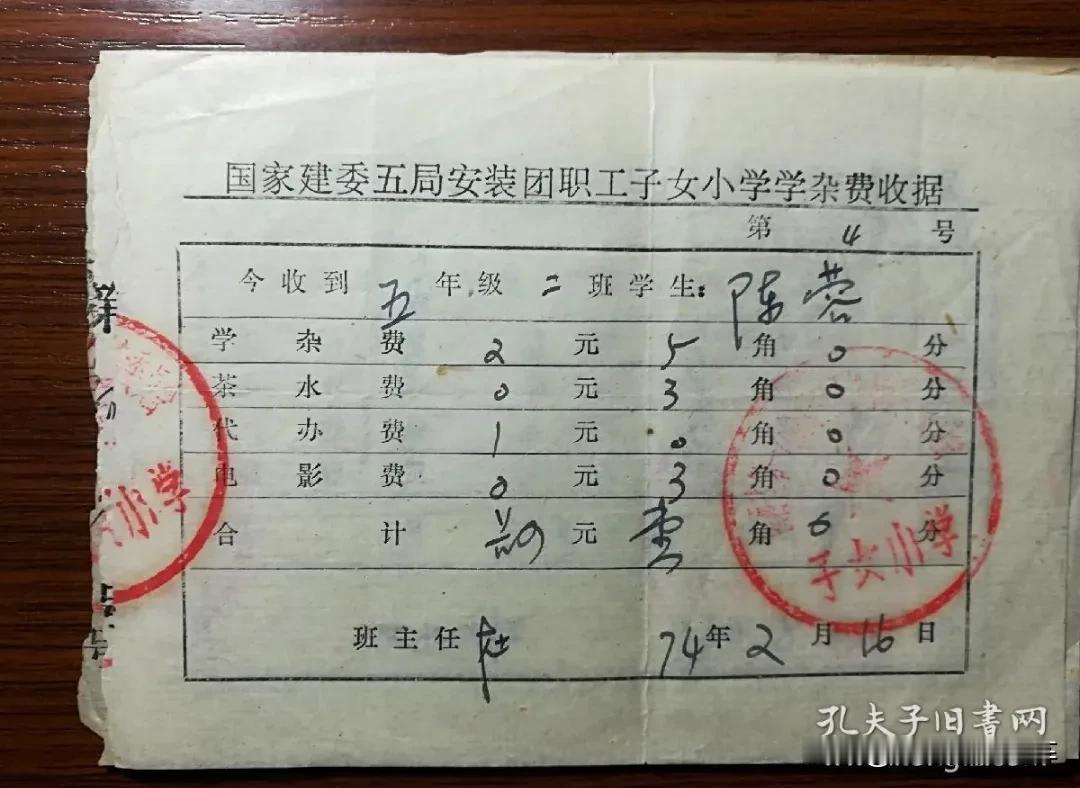 国家建委五局安装团职工子女小学学杂费收据
第 4 号
今收到 五 年级 二 班学生: 陈蓉
学杂费 2 元 5 角 0 分
茶水费 0 元 3 角 0 分
代办费 1 元 0 角 0 分
电影费 0 元 3 角 0 分
合计 元 壹 角 0 分
子女小学
小学
班主任 杜
74年2月16日
孔夫子旧書网